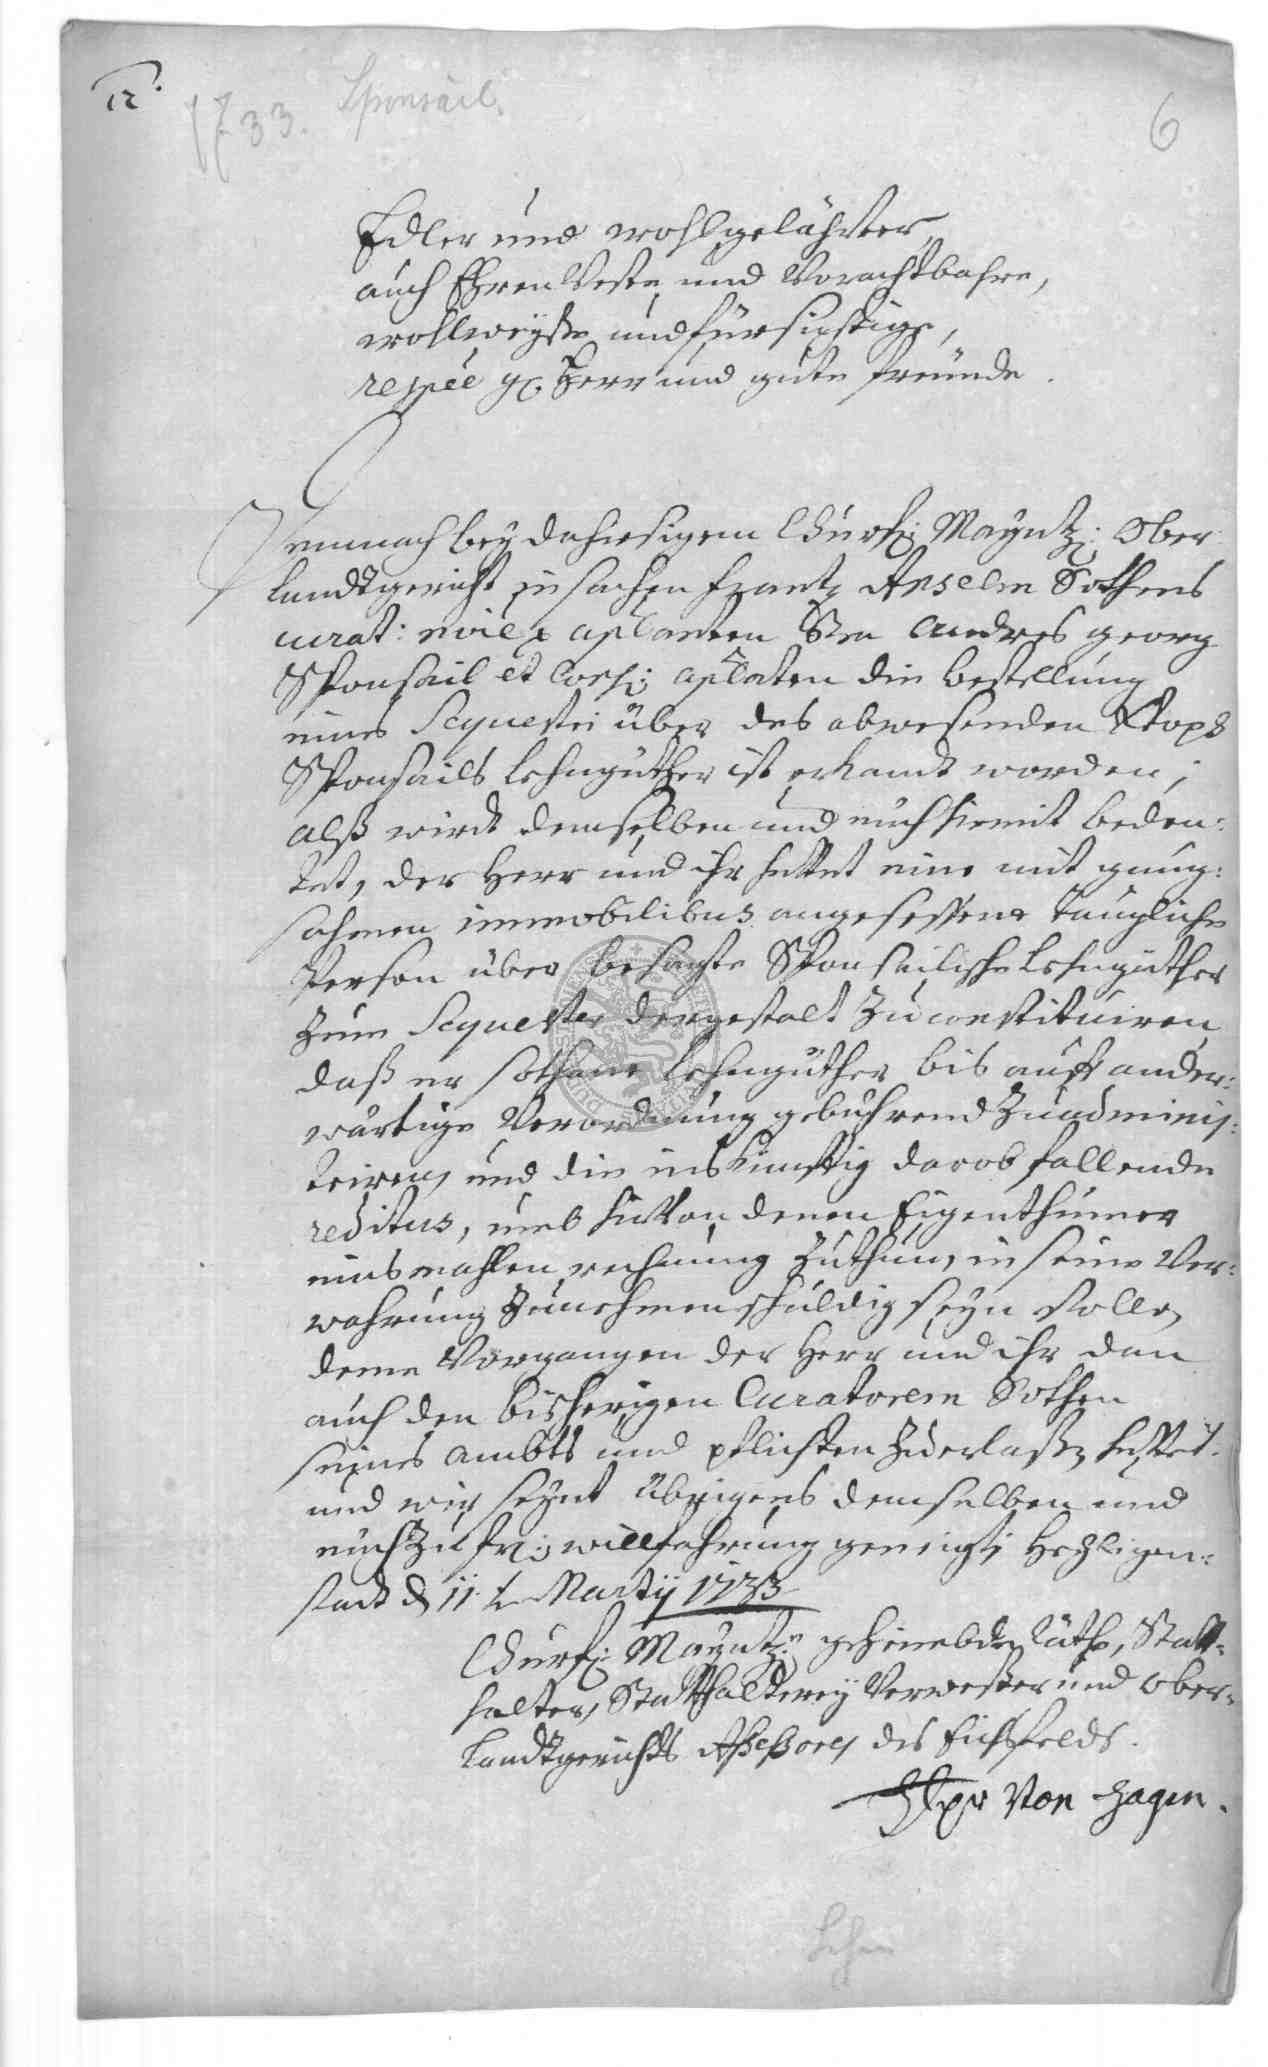 12.
1733. Sponsail.
6
Edler und wohlgelährter,
auch Ehren Veste und Vorachtbahre,
wollweyße und fürsichtige,
respée gr. Herr und gute freünde.
Demnach bey dahiesigem Churfl: Mayntz: Ober
Landtgericht in sachen Frantz Anselm Sothens
curat: noie aplanten den Andres georg
Sponsail et Cons: aplaten die bestellung
eines Sequestri über des abwesenden
Sponsails Lehngüther ist erkandt worden;
alß wirdt demselben und euch hiemit bedeu:
tet, der Herr und ihr hettet eine mit gnug:
sahmen immobilibus angesessene taugliche
Person über besagte Sponsailische Lehngüther
zum Sequester dergestalt zu constituiren
daß er sothane Lehngüther bis auff ander:
wärtige Verordnung gebührend zu adminis:
triren, und die ins künfftig darob fallende
reditus, umb hievon denen Eigenthümer
einsmahlen rechnung zu thun, in seine Ver:
wahrung zu nehmen schuldig seyn solle,
deme Vorgangen der Herr und ihr dan
auch den bisherigen Curatorem Sothen
seines ambts und pflichten zu erlaßen hettet.
und wir seynt übrigens demselben und
euch zu fr: willfahrung geneigt; Heyligen:
stadt d 11t Martij 1733
Churfl: Mayntz: geheimbde Räthe, Statt:
halter, Statthalterey Verweßer und Ober:
Landtgerichts Aßeßores des Eichsfelds.
von Hagen.
Lehn